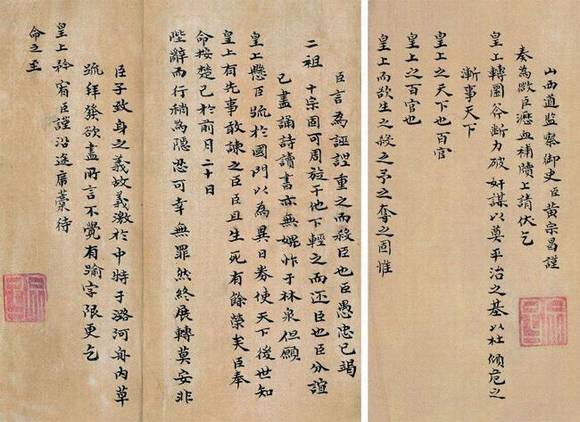 山西道監察御史臣黃宗昌謹
奏為微臣瀝血補牘上請伏乞
皇上轉圜谷斷力破奸謀以奠平治之基以杜傾危之
漸事天下
皇上之天下也百官
皇上之百官也
皇上而欲生之殺之予之奪之固惟
臣言為誣誑重之而殺臣也臣愚忠已竭
二祖
十宗固可周旋于地下輕之而還臣也臣分誼
已盡誦詩讀書亦無愧怍于林泉但願
皇上懸臣疏於國門以為異日券使天下後世知
皇上有先事敢諫之臣臣且生死有餘榮矣臣奉
命按楚已於前月二十日
陛辭而行稍為隱忍可幸無罪然終展轉莫安非
臣子致身之義故義激於中特于潞河舟內草
疏拜發欲盡所言不覺有踰字限更乞
皇上矜宥臣謹沿途席藁待
命之至